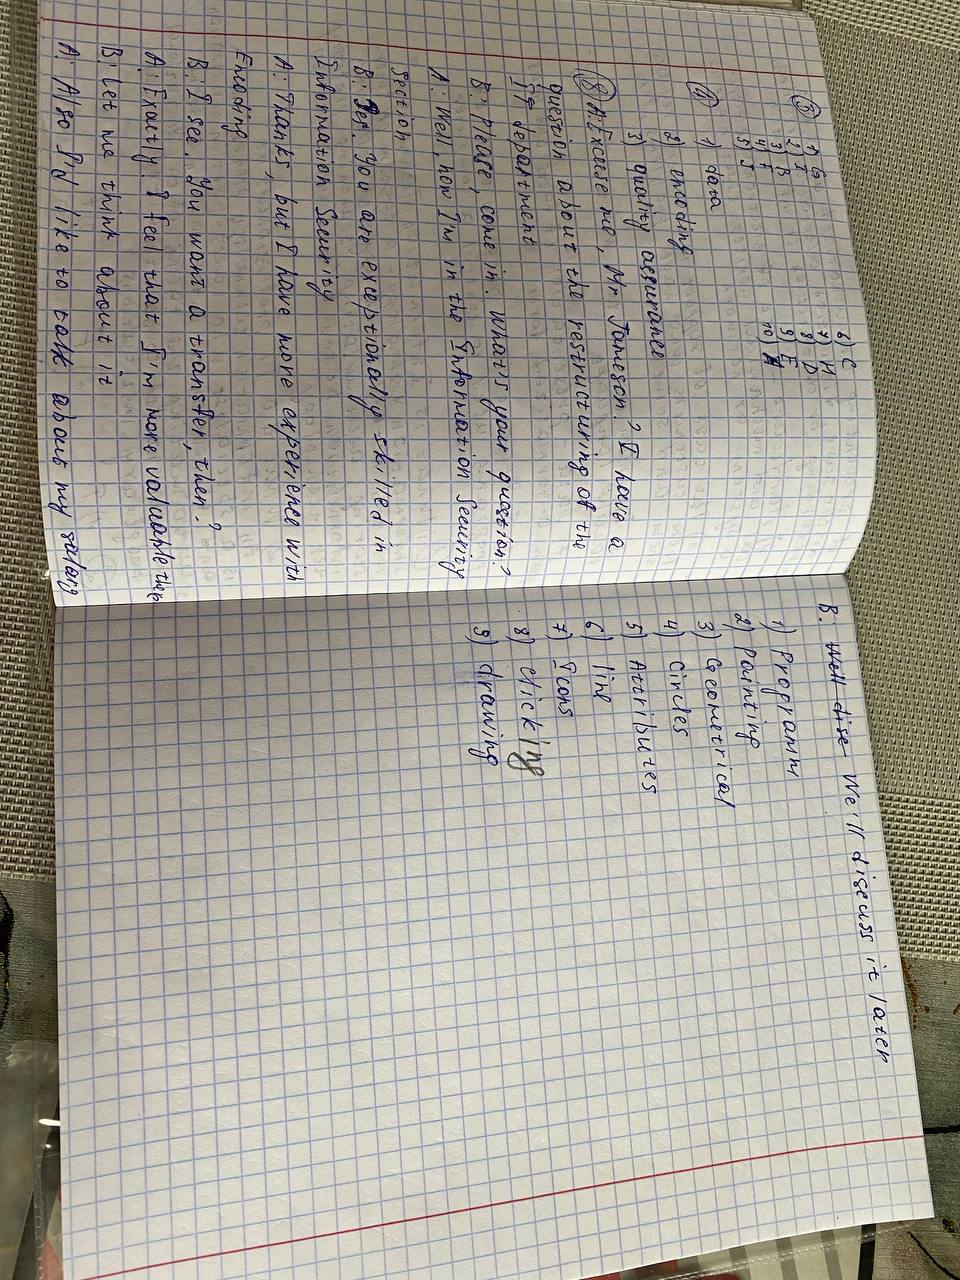 3
1) G
2) I
3) B
4) F
5) J
6) C
7) H
8) D
9) E
10) A
4
1) data
2) encoding
3) quality assurance
8 A: Excuse me, Mr Jameson? I have a
question about the restructuring of the
IT department
B: Please, come in. What's your question?
A: Well, now I'm in the Information Security
section
B: Yes. You are exceptionally skilled in
Information Security
A: Thanks, but I have more experience with
Encoding
B: I see. You want a transfer, then?
A: Exactly. I feel that I'm more valuable there
B: Let me think about it
A: Also I'd like to talk about my salary
B: Well disc We'll discuss it later
1) Programm
2) Painting
3) Geometrical
4) Circles
5) Attributes
6) line
7) Icons
8) clicking
9) drawing